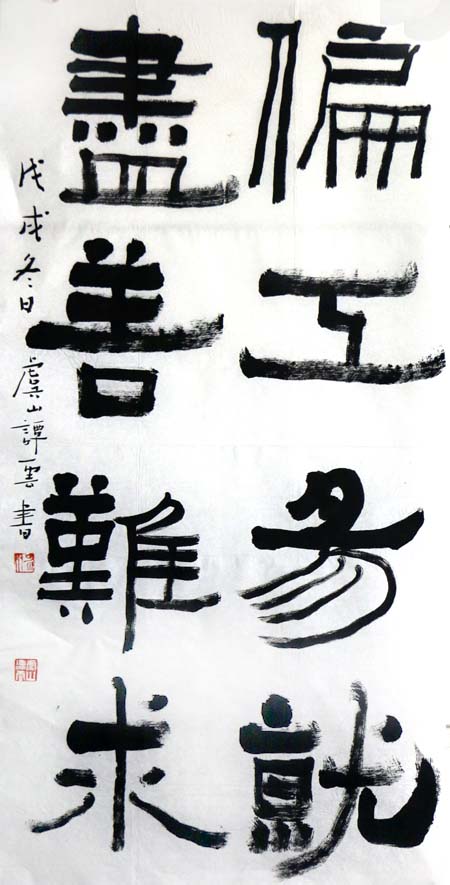 偏工易就
盡善難求
戊戌冬日虞山譚雲書